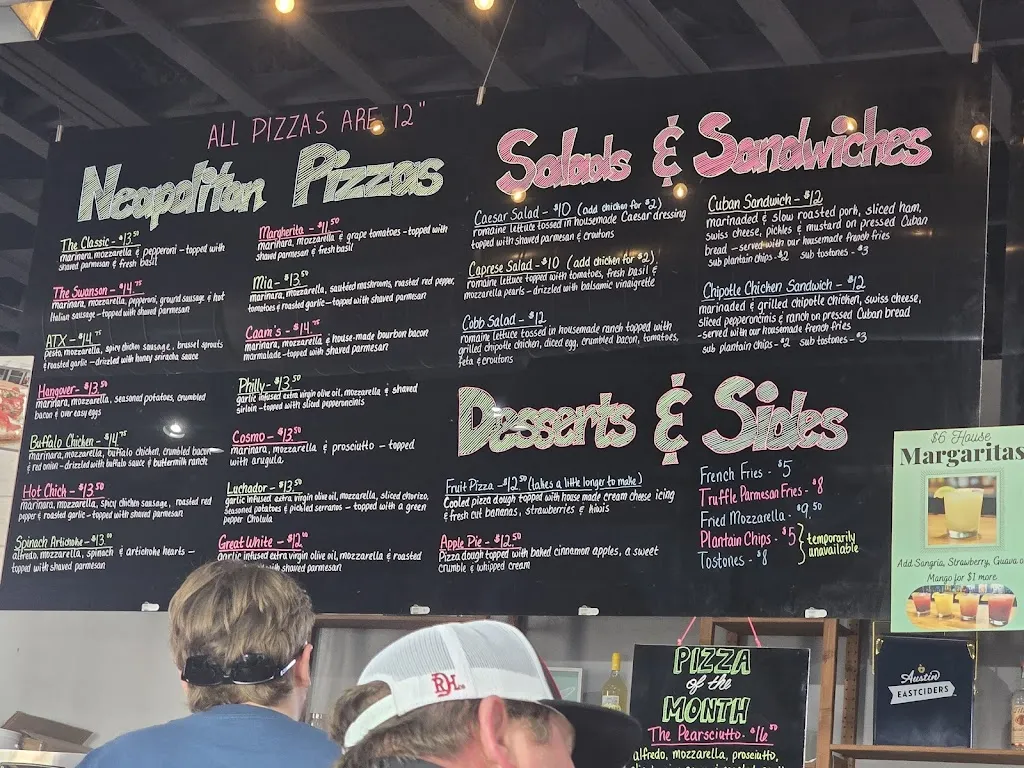 ALL PIZZAS ARE 12"
Neapolitan Pizzas
The Classic - $13.50
marinara, mozzarella & pepperoni - topped with
shaved parmesan & fresh basil
The Swanson - $14.75
marinara, mozzarella, pepperoni, ground sausage & hot
Italian sausage - topped with shaved parmesan
ATX - $14.75
pesto, mozzarella, spicy chicken sausage, brussel sprouts
& roasted garlic - drizzled with honey sriracha sauce
Hangover - $13.50
marinara, mozzarella, seasoned potatoes, crumbled
bacon & over easy eggs
Buffalo Chicken - $14.75
marinara, mozzarella, buffalo chicken, crumbled bacon
& red onion - drizzled with buffalo sauce & buttermilk ranch
Hot Chick - $13.50
marinara, mozzarella, spicy chicken sausage, roasted red
pepper & roasted garlic - topped with shaved parmesan
Spinach Artichoke - $13.00
alfredo, mozzarella, spinach & artichoke hearts -
topped with shaved parmesan
Margherita - $11.50
marinara, mozzarella & grape tomatoes - topped with
shaved parmesan & fresh basil
Mia - $13.50
marinara, mozzarella, sautéed mushrooms, roasted red pepper,
tomatoes & roasted garlic - topped with shaved parmesan
Caam's - $14.75
marinara, mozzarella & house-made bourbon bacon
marmalade - topped with shaved parmesan
Philly - $13.50
garlic infused extra virgin olive oil, mozzarella & shaved
sirloin - topped with sliced pepperoncinis
Cosmo - $13.50
marinara, mozzarella & prosciutto - topped
with arugula
Luchador - $13.50
garlic infused extra virgin olive oil, mozzarella, sliced chorizo,
seasoned potatoes & pickled serranos - topped with a green
pepper Cholula
Great White - $12.00
garlic infused extra virgin olive oil, mozzarella & roasted
garlic - topped with shaved parmesan
Salads & Sandwiches
Caesar Salad - $10 (add chicken for $2)
romaine lettuce tossed in housemade Caesar dressing
topped with shaved parmesan & croutons
Caprese Salad - $10 (add chicken for $2)
romaine lettuce topped with tomatoes, fresh basil &
mozzarella pearls - drizzled with balsamic vinaigrette
Cobb Salad - $12
romaine lettuce tossed in housemade ranch topped with
grilled chipotle chicken, diced egg, crumbled bacon, tomatoes,
feta & croutons
Cuban Sandwich - $12
marinaded & slow roasted pork, sliced ham,
swiss cheese, pickles & mustard on pressed Cuban
bread - served with our housemade french fries
sub plantain chips - $2 sub tostones - $3
Chipotle Chicken Sandwich - $12
marinaded & grilled chipotle chicken, swiss cheese,
sliced pepperoncinis & ranch on pressed Cuban bread
- served with our housemade french fries
sub plantain chips - $2 sub tostones - $3
Desserts & Sides
Fruit Pizza - $12.50 (takes a little longer to make)
Cooled pizza dough topped with house made cream cheese icing
& fresh cut bananas, strawberries & kiwis
Apple Pie - $12.50
Pizza dough topped with baked cinnamon apples, a sweet
crumble & whipped cream
French Fries - $5
Truffle Parmesan Fries - $8
Fried Mozzarella - $9.50
Plantain Chips - $5
Tostones - $8
temporarily
unavailable
$6 House
Margaritas
Add Sangria, Strawberry, Guava o
Mango for $1 more
PIZZA
of the
MONTH
The Pearsciutto - $16
alfredo, mozzarella, prosciutto,
Austin
EASTCIDERS